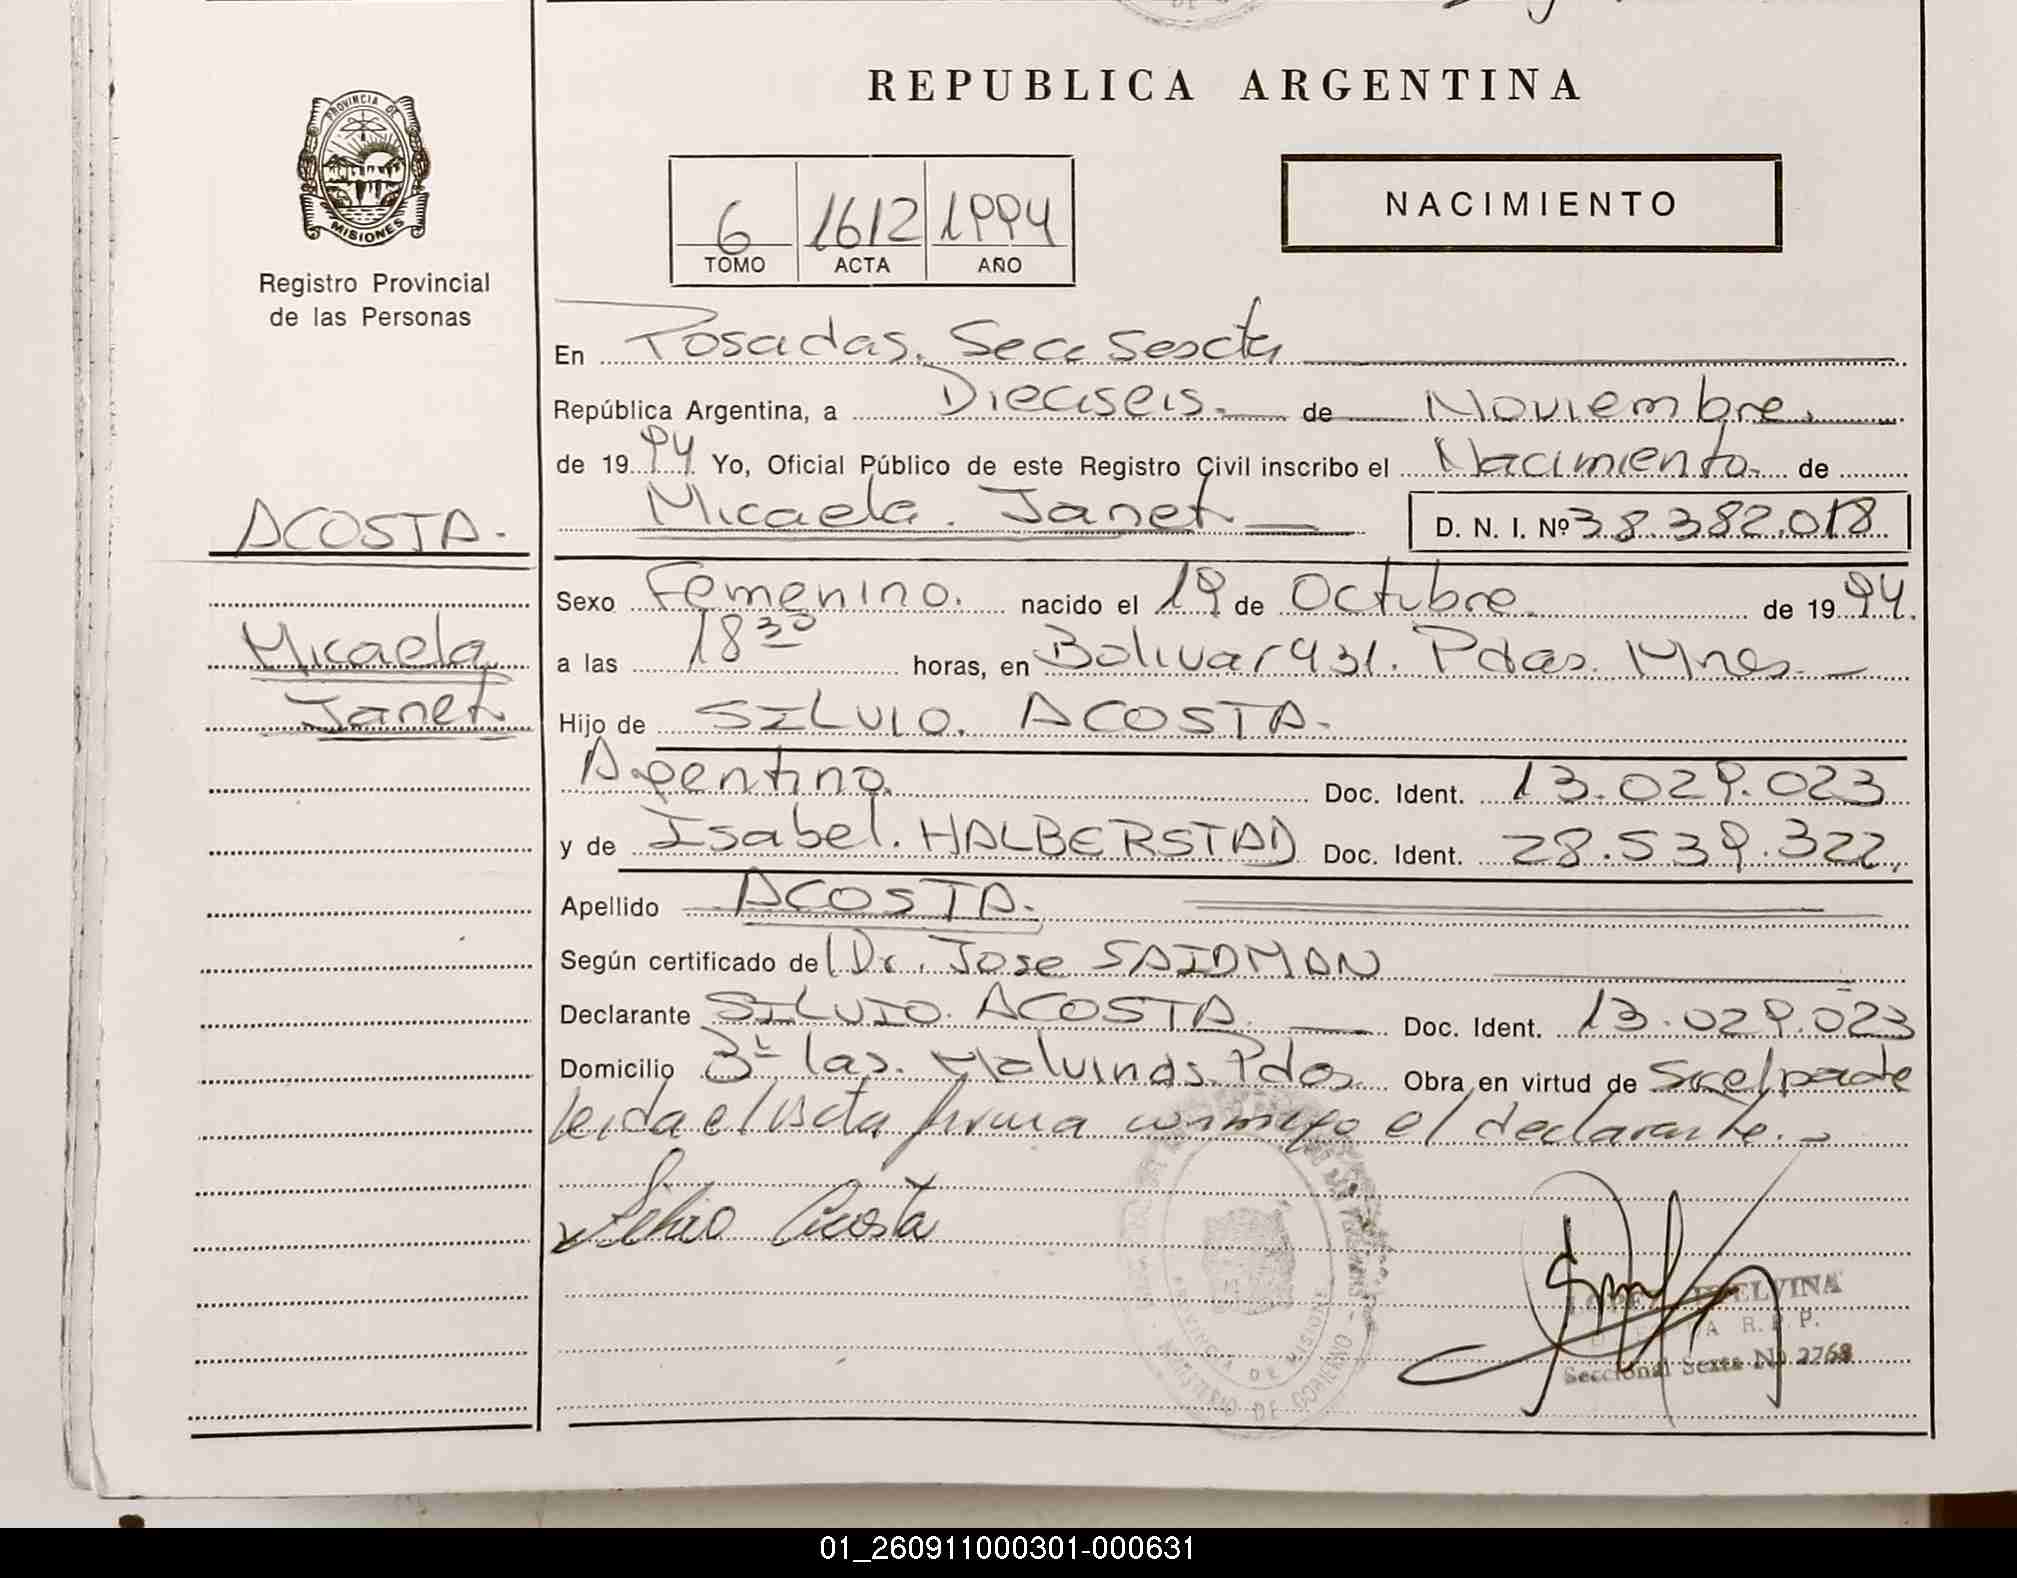 REPUBLICA ARGENTINA
PROVINCIA DE
MISIONES
Registro Provincial
de las Personas
6 1612 1994
TOMO ACTA AÑO
NACIMIENTO
En Posadas. Secc Sexta
República Argentina, a Dieciseis. de Noviembre.
de 1994 Yo, Oficial Público de este Registro Civil inscribo el Nacimiento. de
Micaela. Janet D. N. I. Nº 38.382.018
ACOSTA.
Micaela
Janet
Sexo Femenino. nacido el 19 de Octubre. de 1994.
a las 18 30 horas, en Bolivar 931. Pdas. Mnes.
Hijo de SILVIO. ACOSTA.
Argentino. Doc. Ident. 13.029.023
y de Isabel. HALBERSTAD Doc. Ident. 28.539.322.
Apellido ACOSTA.
Según certificado del Dr. Jose SAIDMAN
Declarante SILVIO. ACOSTA. Doc. Ident. 13.029.023
Domicilio las. Malvinas. Pdas. Obra en virtud de Ser el padre
leida el acta firma conmigo el declarante.
Silvio Acosta
PROVINCIA DE MISIONES
MINISTERIO DE GOBIERNO
LOPEZ ELVINA
R. P. P.
Seccional Sexta Nº 2768
01_260911000301-000631